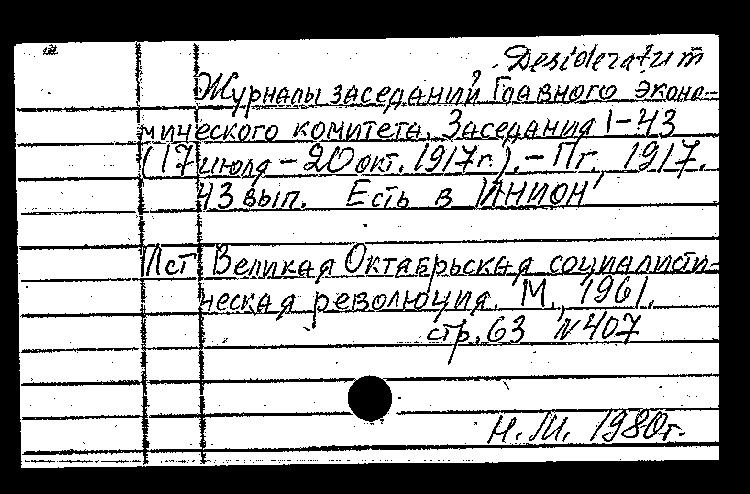 Desideratum
Журналы заседаний Главного эконо-
мического комитета. Заседания 1-43
(17 июля - 20 окт. 1917 г.). - Пг., 1917.
43 вып. Есть в ИНИОН
Ист. Великая Октябрьская социалисти-
ческая революция. М., 1961.
стр. 63 № 407
Н.М. 1980г.